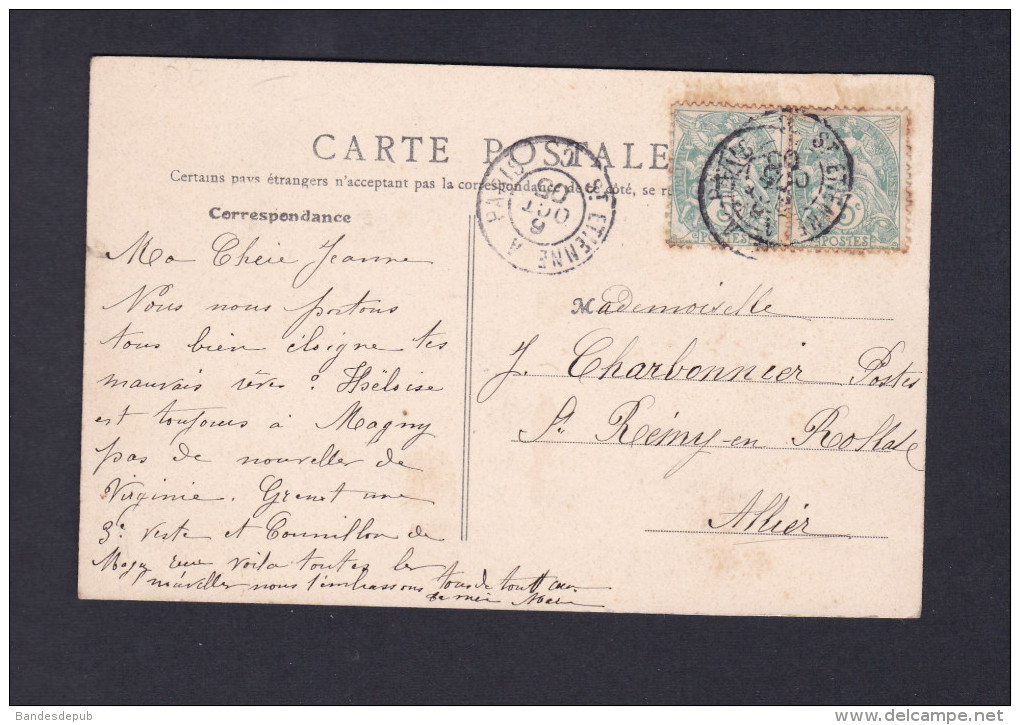 CARTE POSTALE
Certains pays étrangers n'acceptant pas la correspondance de ce côté, se re
Correspondance
ST ETIENNE A PARIS
6
OCT
05
ST ETIENNE A PARIS
OCT
05
POSTES
POSTES
5c
Ma Chère Jeanne
Nous nous portons
tous bien éloigne tes
mauvais rêves. Héloïse
est toujours à Magny
pas de nouvelles de
Virginie. Grenet une
3e veste et de
voila toutes les
nouvelles nous t'embrassons tous de tout
Mademoiselle
J. Charbonnier Postes
St Rémy-en Rollat
Allier
Bandesdepub
www.delcampe.net